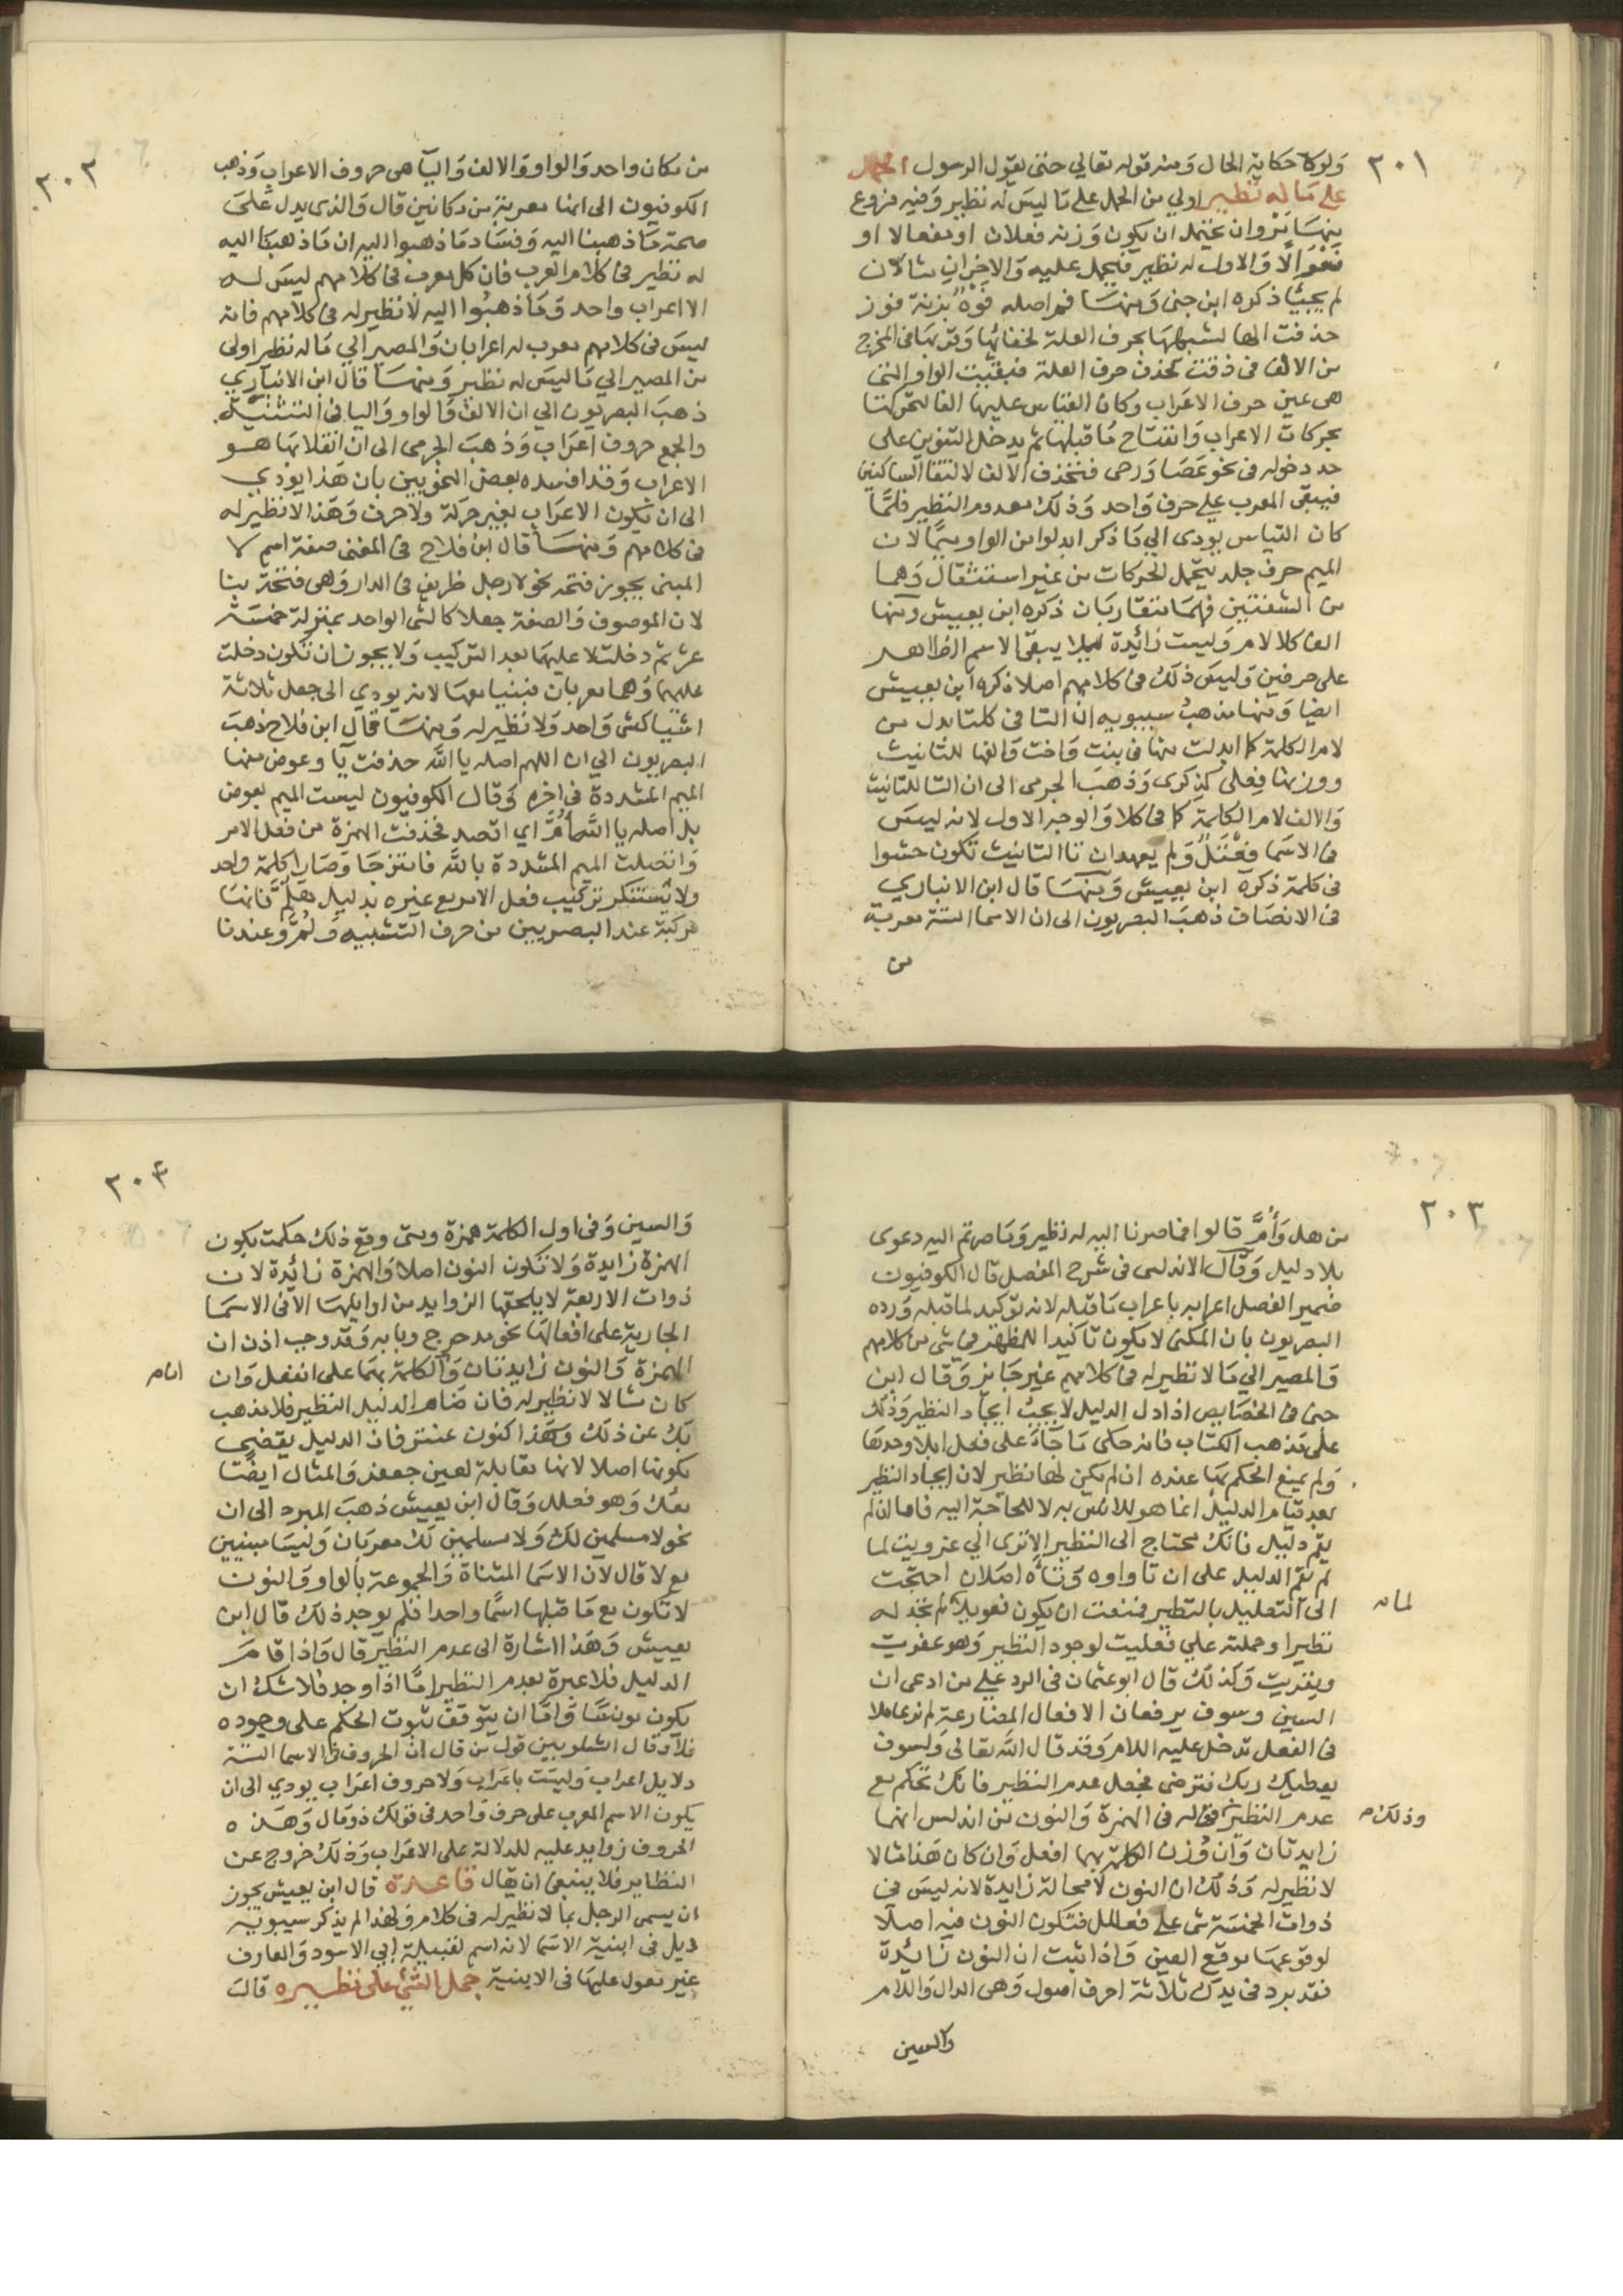 ٢٠١
ولو كان حكاية الحال ومنه قوله تعالي حتى يقول الرسول الحمل
على ماله نظير اولي من الحمل على ما ليس له نظير وفيه فروع
منها مروان يحتمل ان يكون وزنه فعلان او مفعالا او
فعوالا والاول له نظير فيحمل عليه والاخران مثالان
لم يجيئا ذكره ابن جنى ومنها فم اصله فوه بزنة فوز
حذفت الها لشبهها بحرف العلة لخفائها وقربها في المخرج
من الالف فحذفت كحذف حرف العلة فبقيت الواو التي
هي عين حرف الاعراب وكان القياس عليها الفا لتحركها
بحركات الاعراب وانفتاح ما قبلها ثم يدخل التنوين على
حد دخوله في نحو عصا ورحى فتحذف الالف لالتقا الساكنين
فيبقى المعرب على حرف واحد وذلك معدوم النظير فلما
كان القياس يودى الي ما ذكر ابدلوا من الواو ميما لان
الميم حرف جلد يتحمل الحركات من غير استثقال وهما
من الشفتين فهما متقاربان ذكره ابن يعيش ومنها
الف كلا لام وليست زائدة ليلا يبقى الاسم الظاهر
على حرفين وليس ذلك في كلامهم اصلا ذكره ابن يعيش
ايضا ومنها مذهب سيبويه ان التا في كلتا بدل من
لام الكلمة كما ابدلت منها في بنت واخت والفها للتانيث
ووزنها فعلى كذكرى وذهب الجرمى الى ان التا للتانيث
والالف لام الكلمة كما في كلا والوجه الاول لانه ليس
في الاسما فعتل ولم يعهد ان تا التانيث تكون حشوا
في كلمة ذكره ابن يعيش ومنها قال ابن الانباري
في الانصاف ذهب البصريون الى ان الاسما الستة معربة
من
٢٠٢
من مكان واحد والواو والالف واليا هى حروف الاعراب وذهب
الكوفيون الى انها معربة من مكانين قال والذي يدل على
صحة ما ذهبنا اليه وفساد ما ذهبوا اليه ان ما ذهبنا اليه
له نظير في كلام العرب فان كل معرب في كلامهم ليس له
الا اعراب واحد وما ذهبوا اليه لا نظير له في كلامهم فانه
ليس في كلامهم معرب له اعرابان والمصير الي ما له نظير اولى
من المصير الي ما ليس له نظير ومنها قال ابن الانباري
ذهب البصريون الي ان الالف والواو واليا في التثنية
والجمع حروف اعراب وذهب الجرمى الى ان انقلابها هو
الاعراب وقد افسده بعض النحويين بان هذا يودي
الى ان يكون الاعراب بغير حركة ولا حرف وهذا لا نظير له
في كلامهم ومنها قال ابن فلاح في المغنى صفة اسم لا
المبنى يجوز فتحه نحو لا رجل ظريف في الدار وهي فتحة بنا
لان الموصوف والصفة جعلا كالشى الواحد بمنزلة خمسة
عشر ثم دخلت لا عليهما بعد التركيب ولا يجوز ان تكون دخلت
عليهما وهما معربان فبنيا معها لانه يودي الى جعل ثلاثة
اشيا كشى واحد ولا نظير له ومنها قال ابن فلاح ذهب
البصريون الي ان اللهم اصله يا الله حذفت يا وعوض منها
الميم المشددة في اخره وقال الكوفيون ليست الميم بعوض
بل اصله يا الله ام اي اقصد فحذفت الهمزة من فعل الامر
واتصلت الميم المشددة بالله فامتزجا وصارا كلمة واحد
ولا يستنكر تركيب فعل الامر مع غيره بدليل هلم فانها
مركبة عند البصريين من حرف التنبيه ولم وعندنا
٢٠٣
من هل وأم قالوا فما صرنا اليه له نظير وما صرتم اليه دعوى
بلا دليل وقال الاندلسى في شرح المفصل قال الكوفيون
ضمير الفصل اعرابه باعراب ما قبله لانه توكيد لما قبله ورده
البصريون بان المكنى لا يكون تاكيدا للمظهر في شى من كلامهم
والمصير الي ما لا نظير له في كلامهم غير جايز وقال ابن
جنى في الخصايص اذا دل الدليل لا يجب ايجاد النظير وذلك
على مذهب الكتاب فانه حكى مما جاء على فعل ابلا وحدها
ولم يمنع الحكم بها عنده ان لم يكن لها نظير لان ايجاد النظير
بعد قيام الدليل انما هو للانس به لا للحاجة اليه فاما ان لم
يقم دليل فانك محتاج الى النظير الا ترى الي عزويت لما
لم يقم الدليل على ان تاواوه وتاءه اصلان احتجت
الى التعليل بالنظير فمنعت ان يكون فعويلا لم تجد له
لمانه
نظيرا وحملته على فعليت لوجود النظير وهو عفريت
ونفريت وكذلك قال ابو عثمان في الرد على من ادعى ان
السين وسوف يرفعان الافعال المضارعة لم نر عاملا
في الفعل تدخل عليه اللام وقد قال الله تعالى ولسوف
يعطيك ربك فترضى فجعل عدم النظير فانك تحكم مع
عدم النظير قوله في الهمزة والنون من اندلس انهما
وذلك
زايدتان وان وزن الكلمة بهما انفعل وان كان هذا مثالا
لا نظير له وذلك ان النون لا محالة زايدة لانه ليس في
ذوات الخمسة شى على فعلل فتكون النون فيه اصلا
لوقوعها موقع العين واذا ثبت ان النون زائدة
فقد برد في يدك ثلاثة احرف اصول وهى الدال واللام
والسين
٢٠٤
والسين وفي اول الكلمة همزة ومتى وقع ذلك حكمت بكون
الهمزة زايدة ولا تكون النون اصلا والهمزة زائدة لان
ذوات الاربعة لا يلحقها الزوايد من اوايلها الا في الاسما
الجارية على افعالها نحو مدحرج وبابه وقد وجب اذن ان
الهمزة والنون زايدتان والكلمة بهما على انفعل وان
كان مثالا لا نظير له فان ضام الدليل النظير فلا مذهب
بك عن ذلك وهذا كنون عنتر فان الدليل يقضي
بكونها اصلا لانها مقابلة لعين جعفر والمثال ايضا
معك وهو فعلل وقال ابن يعيش ذهب المبرد الى ان
نحو لا مسلمين لك ولا مسلمين لك معربان وليسا مبنيين
مع لا قال لان الاسما المثناة والمجموعة بالواو والنون
لا تكون مع ما قبلها اسما واحدا فلم يوجد ذلك قال ابن
يعيش وهذا اشارة الى عدم النظير قال واذا قام
الدليل فلا عبرة بعدم النظير اما اذا وجد فلا شك ان
يكون مونسا واما ان يتوقف ثبوت الحكم على وجوده
فلا وقال الشلوبين قول من قال ان الحروف في الاسما الستة
دلايل اعراب وليست باعراب ولا حروف اعراب يودي الى ان
يكون الاسم المعرب على حرف واحد في قولك ذو مال وهذه
الحروف زوايد عليه للدلالة على الاعراب وذلك خروج عن
النظاير فلا ينبغي ان يقال قاعدة قال ابن يعيش يجوز
ان يسمى الرجل بما لا نظير له في كلامهم ولهذا لم يذكر سيبويه
دئل في ابنية الاسما لانه اسم لقبيلة ابي الاسود والمعارف
غير معول عليها في الابنية حمل الشئ على نظيره قال